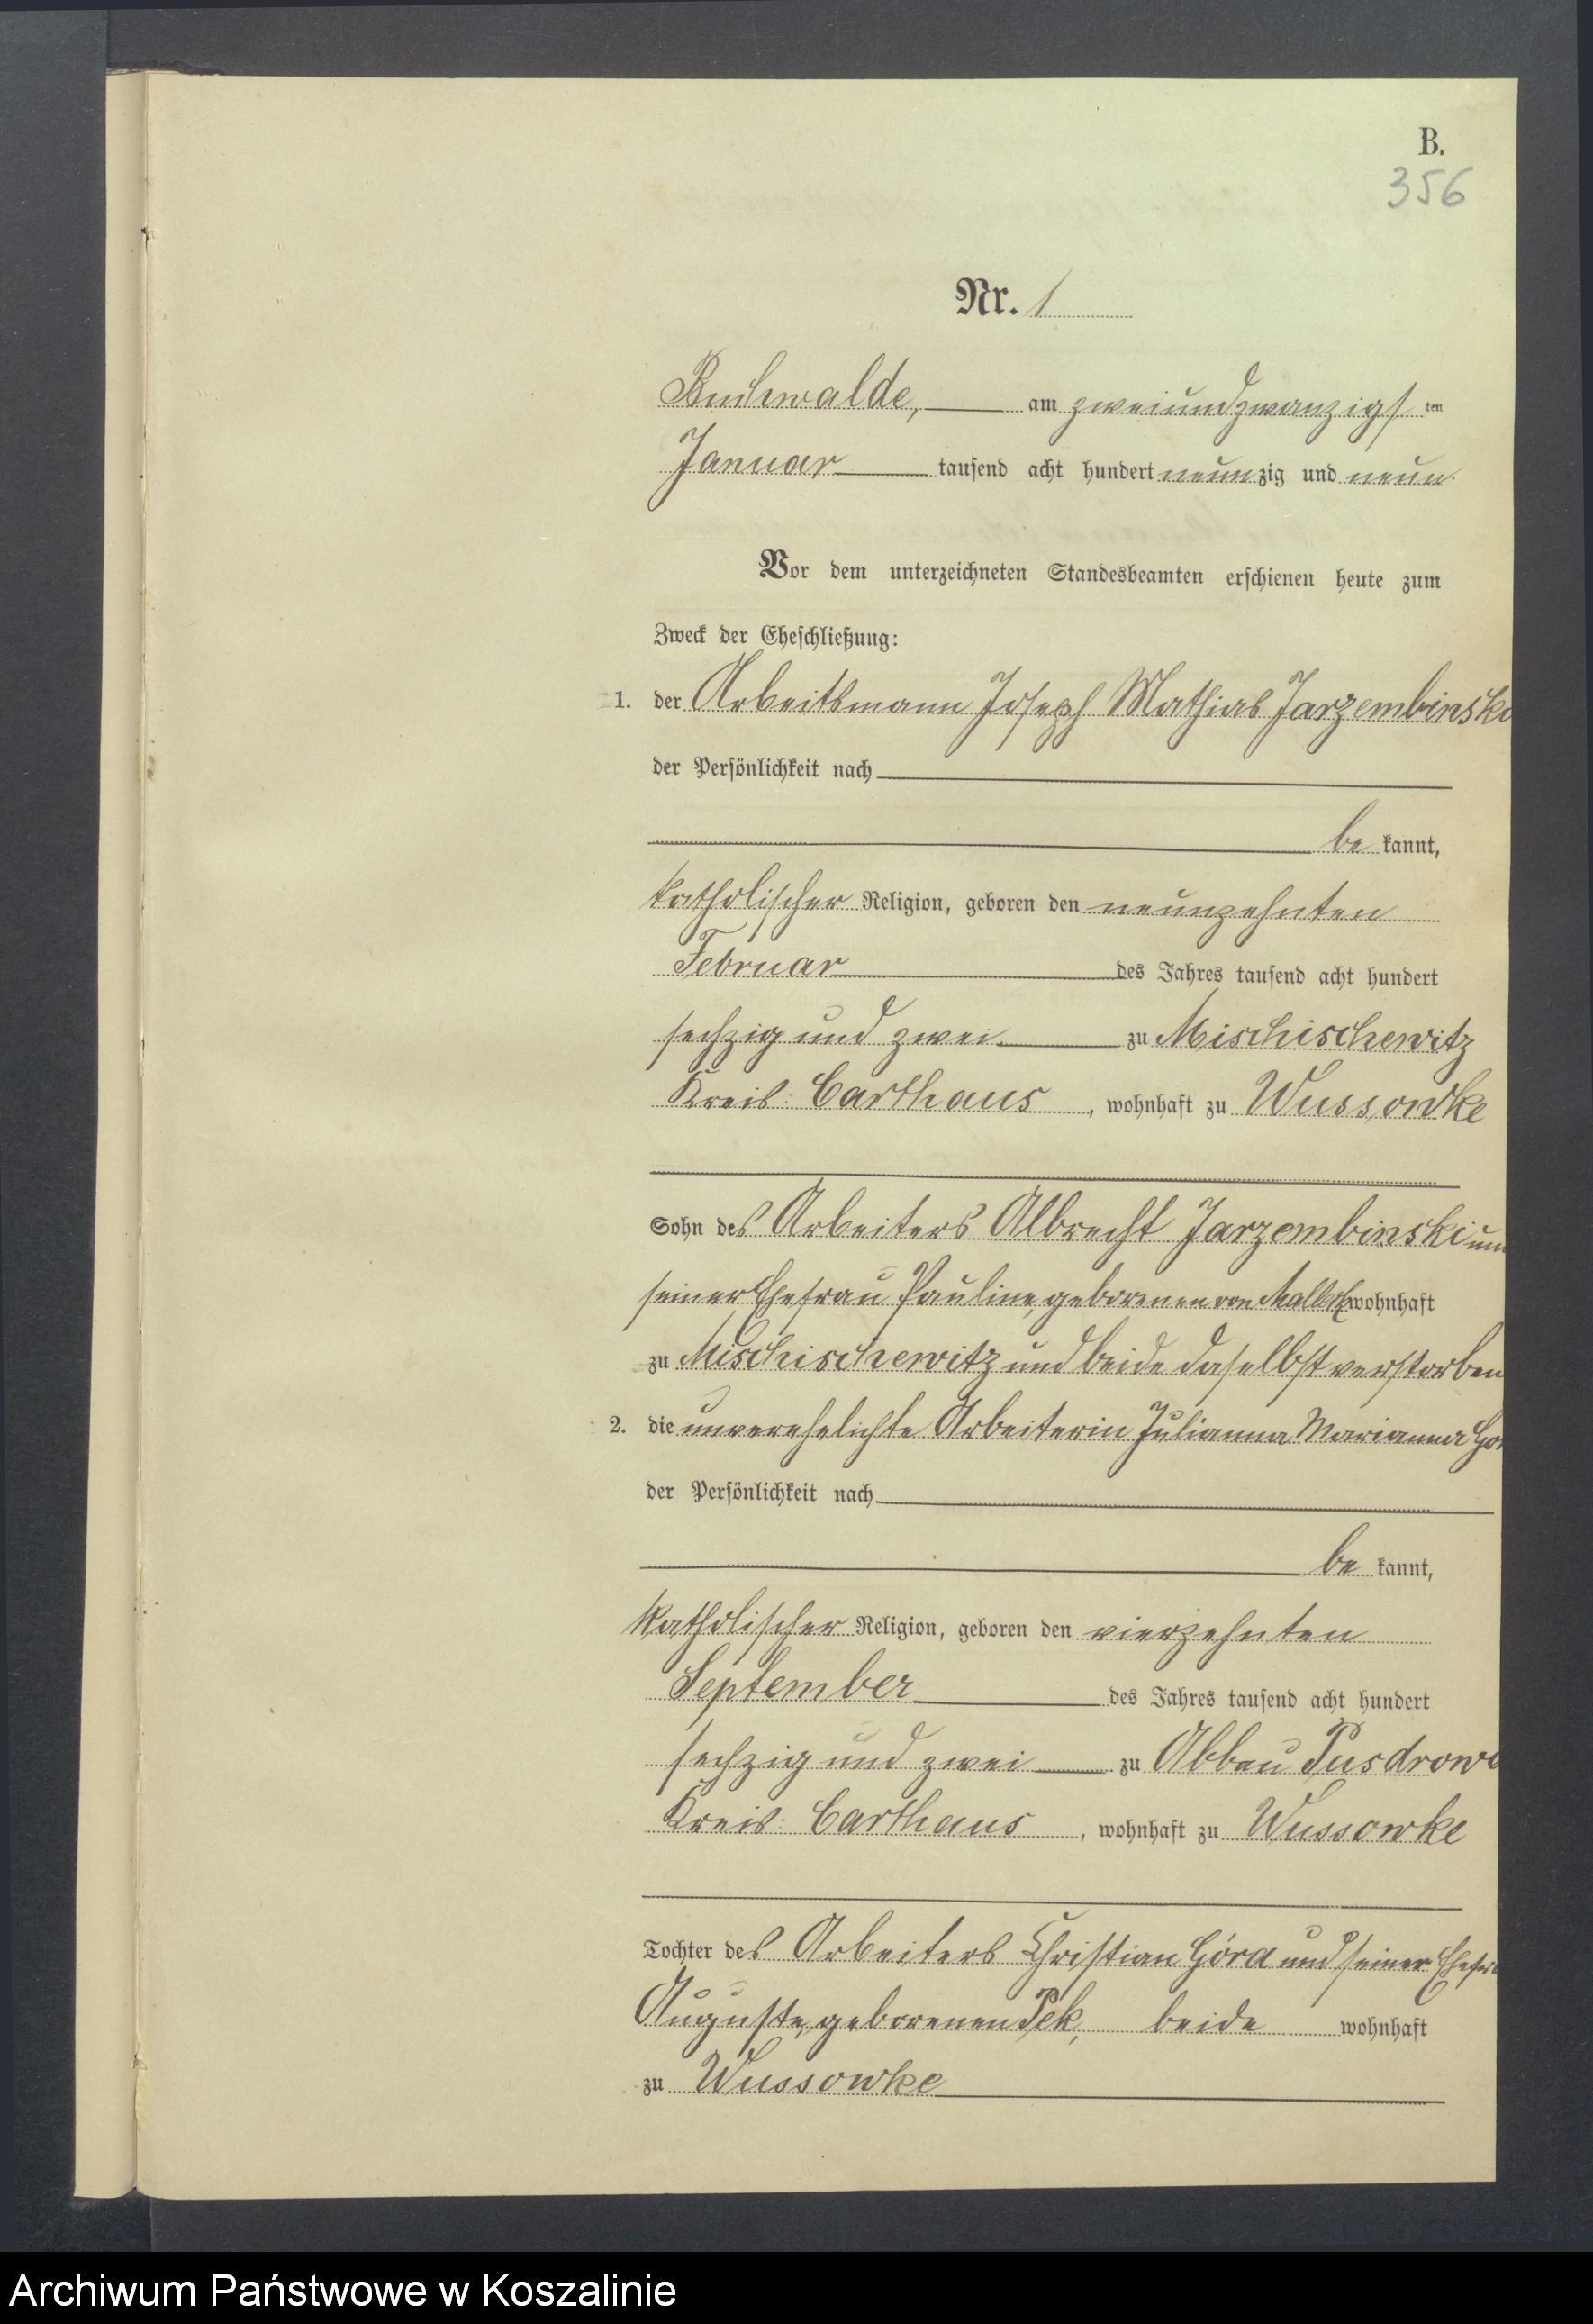 B.
356
Nr. 1
Buchwalde, am zweiundzwanzigsten
Januar tausend acht hundert neunzig und neun.
Vor dem unterzeichneten Standesbeamten erschienen heute zum
Zweck der Eheschließung:
1. der Arbeitsmann Joseph Mathias Jarzembinski
der Persönlichkeit nach
be kannt,
katholischer Religion, geboren den neunzehnten
Februar des Jahres tausend acht hundert
sechzig und zwei zu Mischischewitz
Kreis: Carthaus, wohnhaft zu Wussowke
Sohn des Arbeiters Albrecht Jarzembinski un
seiner Ehefrau Pauline, geborenen von wohnhaft
zu Mischischewitz und beide daselbst verstorben
2. die unverehelichte Arbeiterin Julianna Marianna Gó
der Persönlichkeit nach
be kannt,
katholischer Religion, geboren den vierzehnten
September des Jahres tausend acht hundert
sechzig und zwei zu Abbau Pusdrowo
Kreis: Carthaus, wohnhaft zu Wussowke
Tochter des Arbeiters Christian Góra und seiner Ehefra
Auguste, geborenen Pek, beide wohnhaft
zu Wussowke
Archiwum Państwowe w Koszalinie